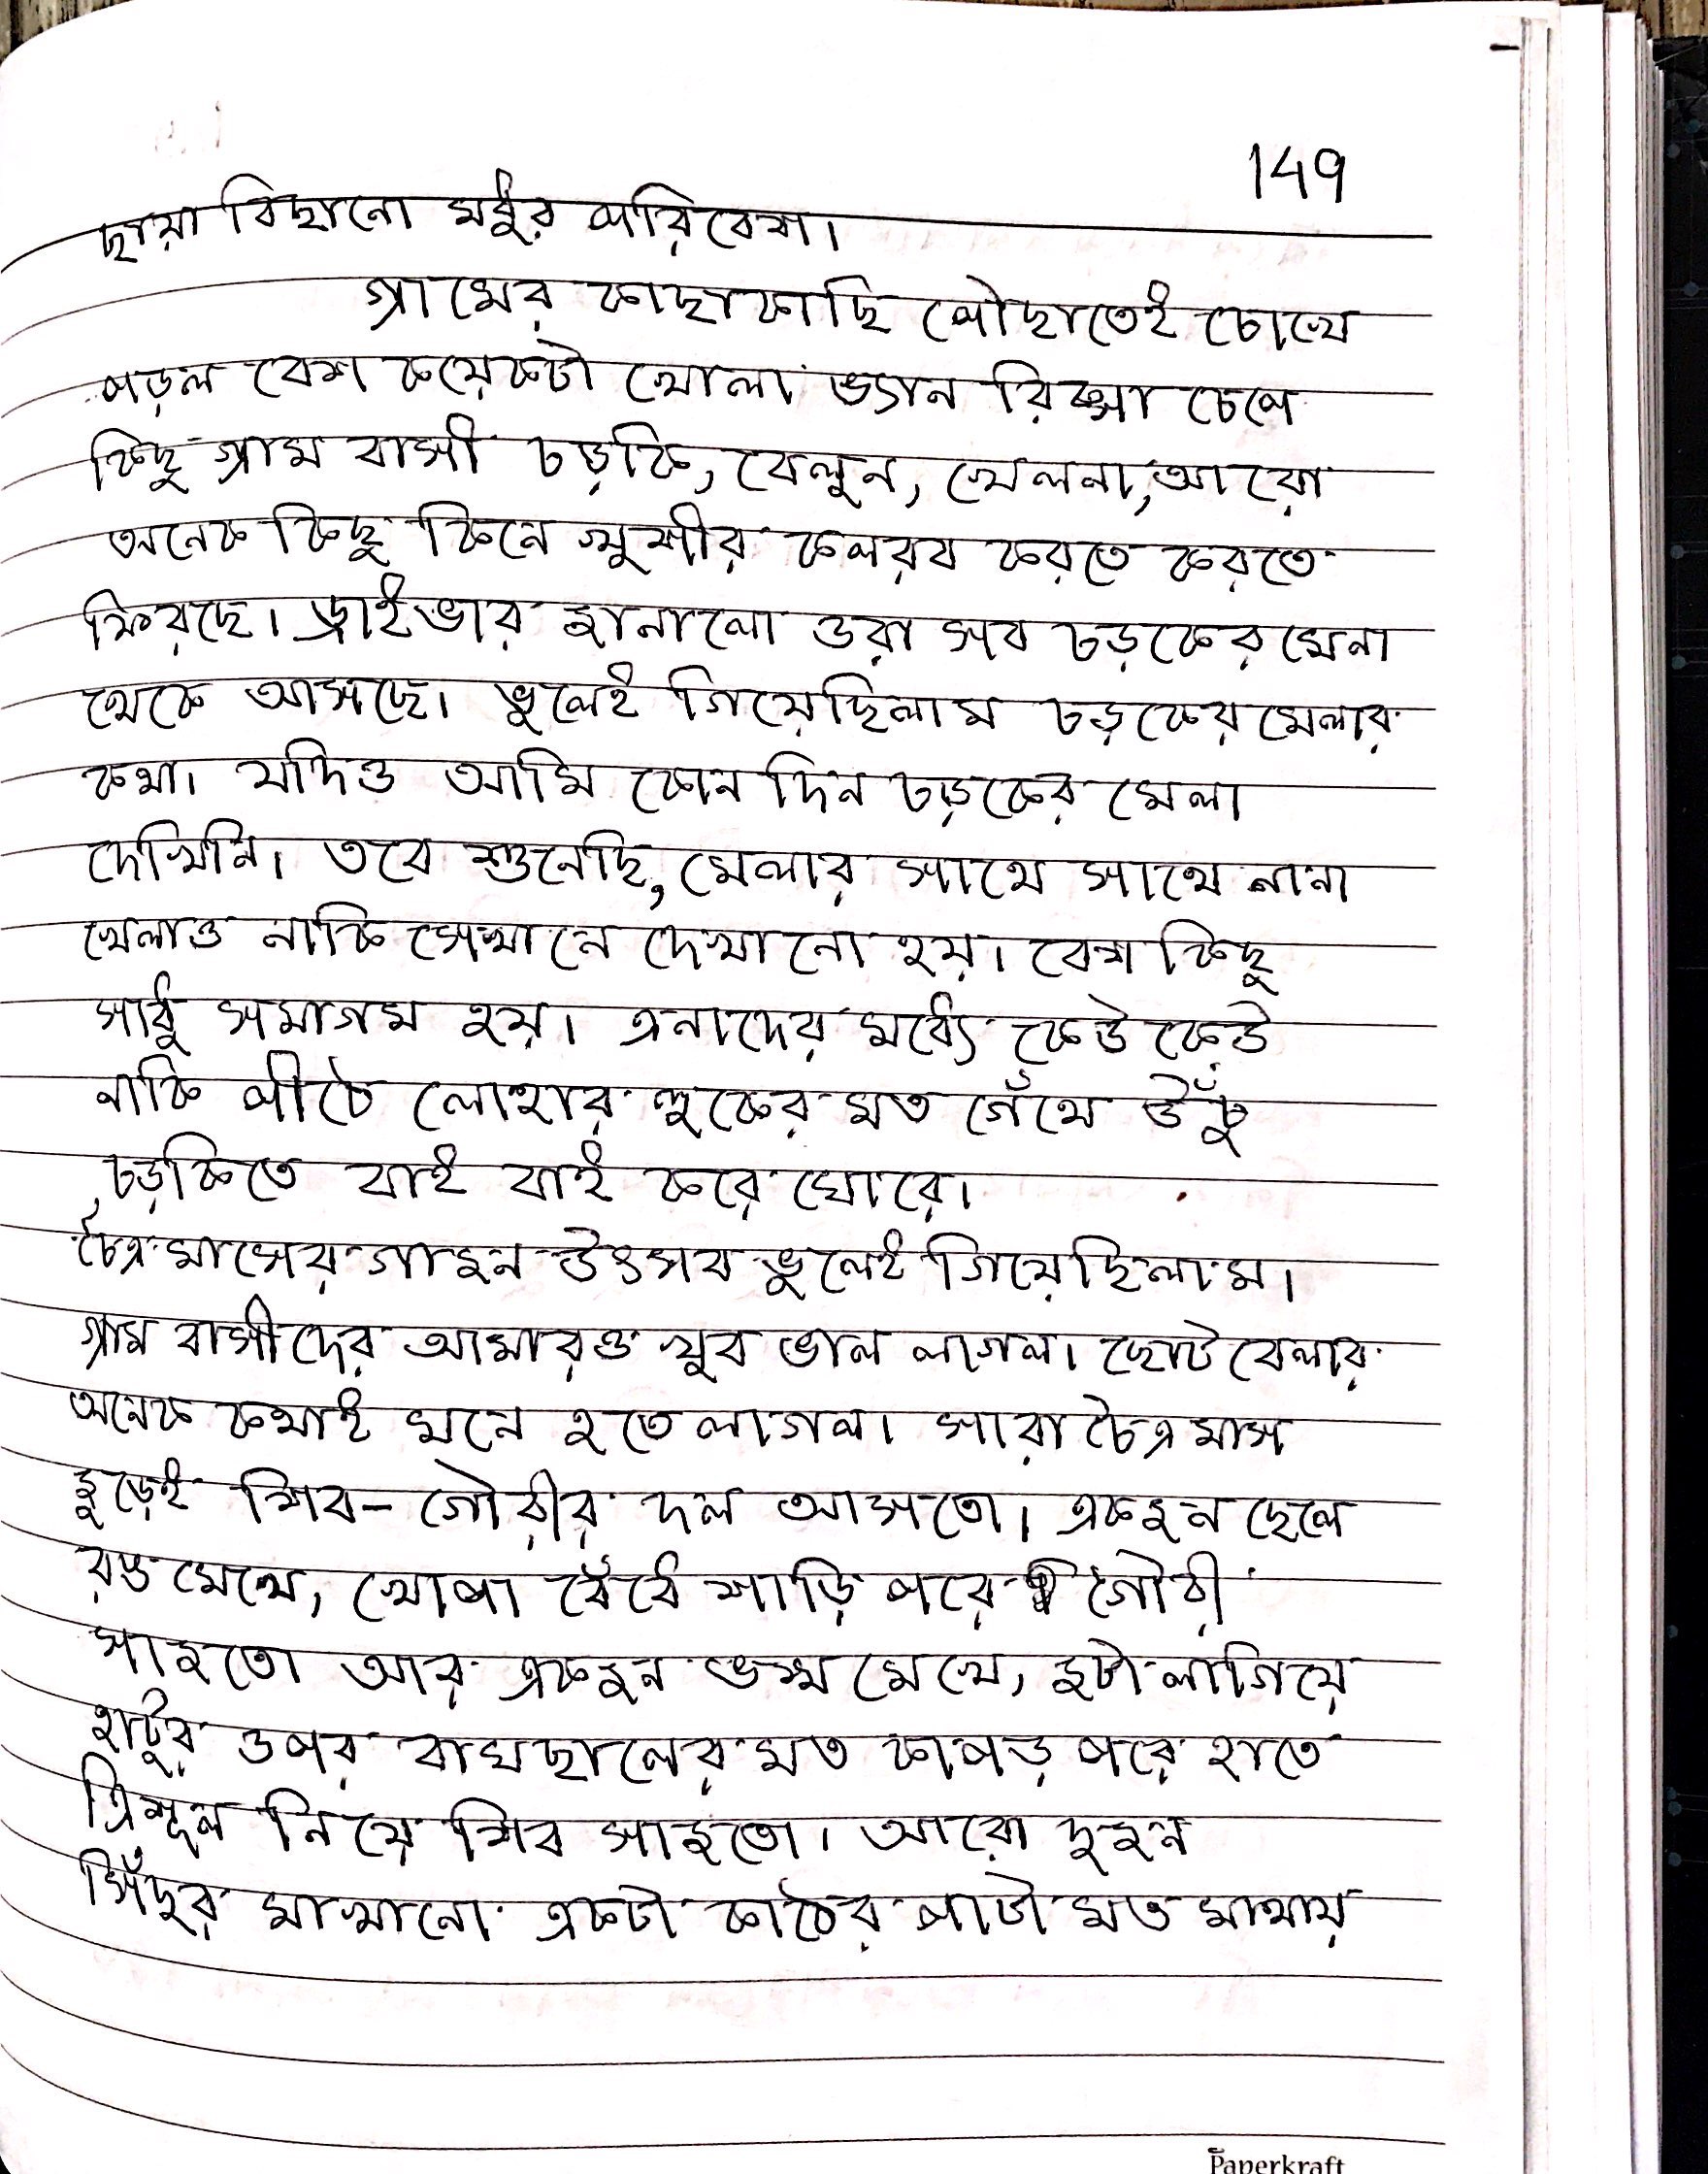 149
ছায়া বিছানো মধুর পরিবেশ।
গ্রামের কাছাকাছি পৌছাতেই চোখে
পড়ল বেশ কয়েকটা খোলা ভ্যান রিক্সা চেপে
কিছু গ্রাম বাসী চড়কি, বেলুন, খেলনা, আরো
অনেক কিছু কিনে খুশীর কলরব করতে করতে
ফিরছে। ড্রাইভার জানালো ওরা সব চড়কের মেলা
থেকে আসছে। ভুলেই গিয়েছিলাম চড়কের মেলার
কথা। যদিও আমি কোন দিন চড়কের মেলা
দেখিনি। তবে শুনেছি, মেলার সাথে সাথে নানা
খেলাও নাকি সেখানে দেখানো হয়। বেশ কিছু
সাধু সমাগম হয়। এনাদের মধ্যে কেউ কেউ
নাকি পীঠে লোহার হুকের মত গেঁথে উঁচু
চড়কিতে বাই বাই করে ঘোরে।
চৈত্র মাসের গাজন উৎসব ভুলেই গিয়েছিলাম।
গ্রাম বাসীদের আমারও খুব ভাল লাগল। ছোট বেলার
অনেক কথাই মনে হতে লাগল। সারা চৈত্র মাস
জুড়েই শিব-গৌরীর দল আসতো। একজন ছেলে
রঙ মেখে, খোপা বেঁধে শাড়ি পরে গৌরী
সাজতো আর একজন ভস্ম মেখে, জটা লাগিয়ে
হাটুর ওপর বাঘছালের মত কাপড় পরে হাতে
ত্রিশূল নিয়ে শিব সাজতো। আরো দুজন
সিঁদুর মাখানো একটা কাঠের পাটা মত মাথায়
Paperkraft